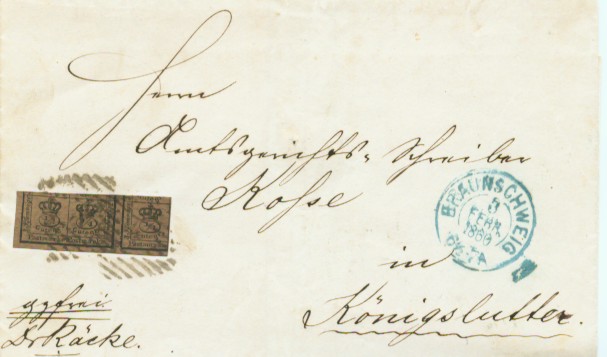 Herrn
Amtsgerichts-Schreiber
Kosse
in
Königslutter.
BRAUNSCHWEIG
5
FEBR.
1866
frei
Dr Räcke.